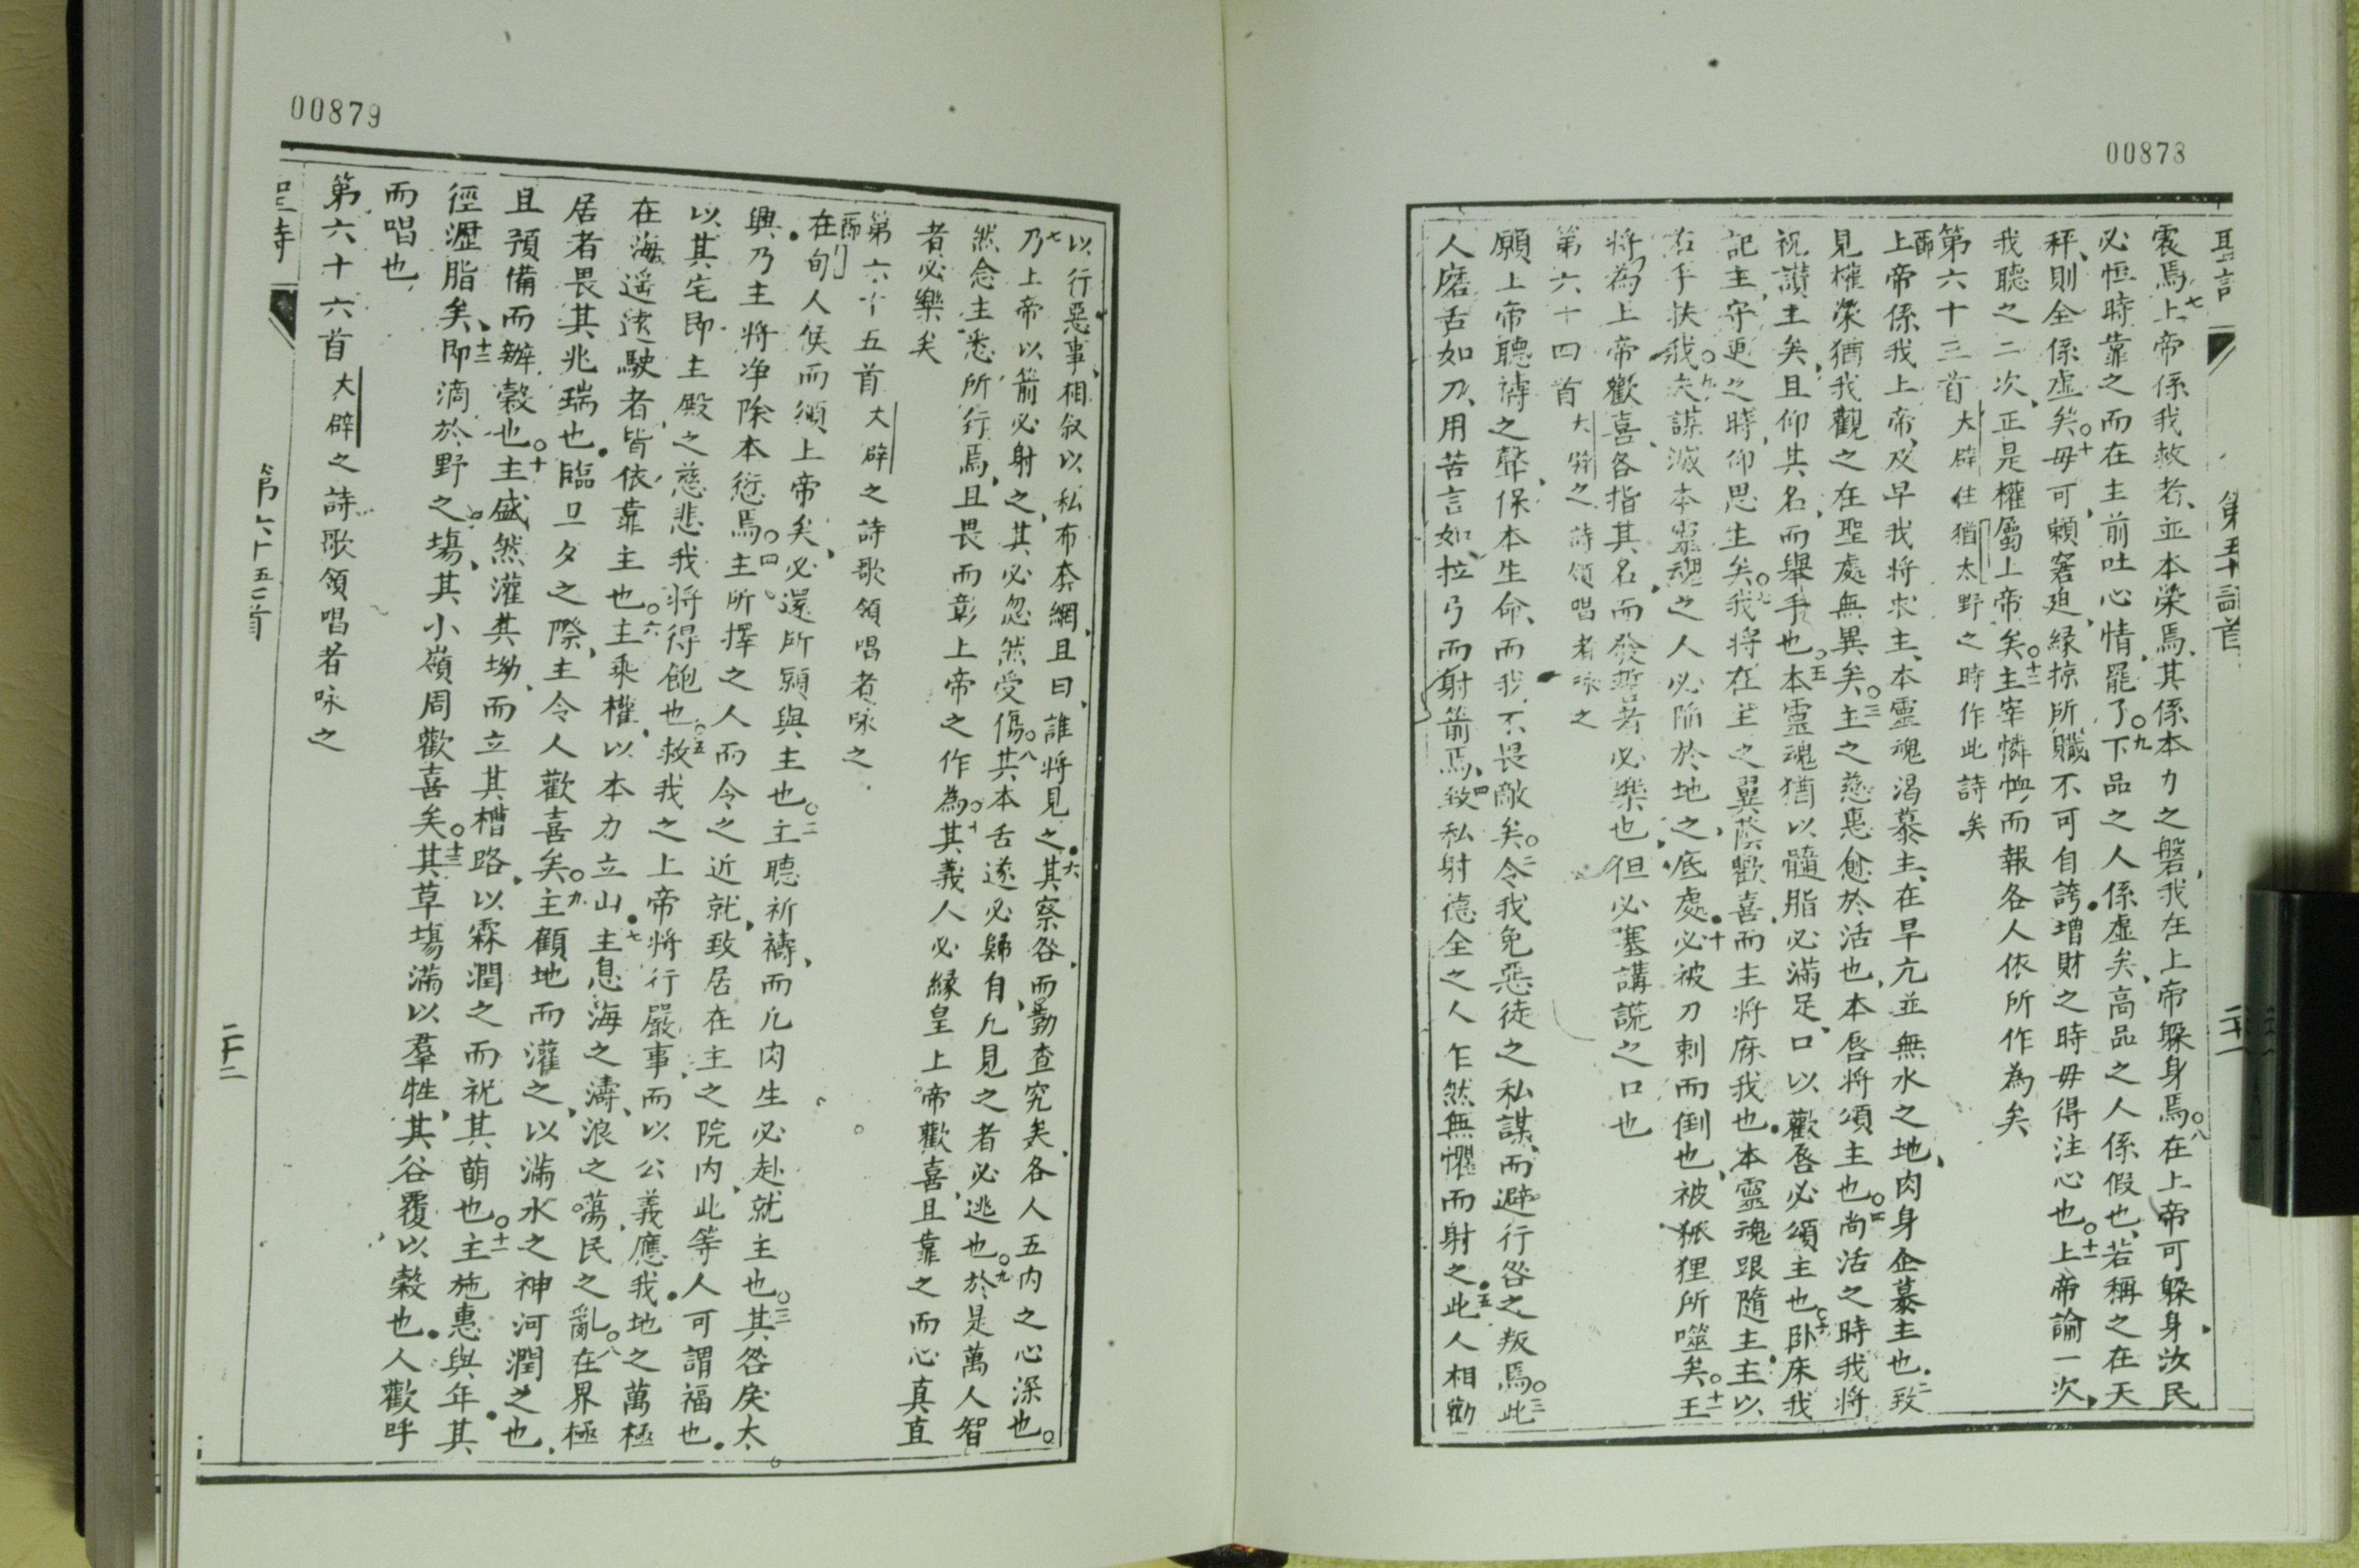 00878
聖詩 第 首 二十一
震焉、七上帝係我救者、並本榮焉、其係本力之磐、我在上帝躱身焉。八在上帝可躱身、汝民
必恒時靠之、而在主前吐心情罷了。九下品之人係虛矣、高品之人係假也、若稱之在天
秤、則全係虛矣。十毋可賴窘廹、緣掠所贓不可自誇、增財之時毋得注心也。十一上帝諭一次、
我聽之二次、正是權屬上帝矣。十二主宰憐恤、而報各人依所作為矣
第六十三首 大辟住猶太野之時作此詩矣
上帝係我上帝、及早我將求主、本靈魂渴慕主、在旱亢並無水之地、肉身企慕主也。二致
見權榮、猶我觀之在聖處無異矣。三主之慈惠愈於活也、本唇將頌主也。四尚活之時我將
祝讃主矣、且仰其名、而舉手也。五本靈魂猶以髓脂必滿足、口以歡唇必頌主也。六卧床我
記主、守更之時、仰思主矣。七我將在主之翼蔭歡喜、而主將庥我也。本靈魂跟隨主、主以
右手扶我。九夫謀滅本靈魂之人、必陷於地之底處。十必被刀刺而倒也、被狐狸所噬矣。十一王
將為上帝歡喜、各指其名而發誓者必樂也、但必塞講謊之口也
第六十四首 大辟之詩領唱者咏之
願上帝聽禱之聲、保本生命、而我不畏敵矣。二令我免惡徒之私謀、而避行咎之叛焉。三此
人磨舌如刀、用苦言如拉弓而射箭焉、四致私射德全之人、乍然無懼而射之。五此人相勸
00879
以行惡事、相敘以私布奈網、且曰、誰將見之。六其察咎、而勤查究矣、各人五內之心深也。
七乃上帝以箭必射之、其必忽然受傷。八其本舌遂必歸自、凡見之者必逃也。九於是萬人智
然念主悉所行焉、且畏而彰上帝之作為。十其義人必緣皇上帝歡喜、且靠之、而心真直
者必樂矣
第六十五首 大辟之詩歌領唱者咏之
在郇人俟而頌上帝矣、必還所願與主也。二主聽祈禱、而凡肉生必赴就主也。三其咎戾太
興、乃主將净除本愆焉。四主所擇之人而令之近就、致居在主之院內、此等人可謂福也。
以其宅即主殿之慈悲、我將得飽也。五救我之上帝將行嚴事、而以公義應我、地之萬極
在海遥遠駛者、皆依靠主也。六主乘權、以本力立山。七主息海之濤、浪之蕩、民之亂。八在界極
居者畏其兆瑞也、臨旦夕之際、主令人歡喜矣。九主顧地而灌之、以滿水之神河潤之也、
且預備而辦穀也。十主盛然灌其坳、而立其槽路、以霖潤之、而祝其萌也。十一主施惠與年、其
徑瀝脂矣、十二即滴於野之塲、其小嶺周歡喜矣。十三其草塲滿以羣牲、其谷覆以穀也、人歡呼
而唱也
第六十六首 大辟之詩歌領唱者咏之
聖詩 第六十五首 二十二